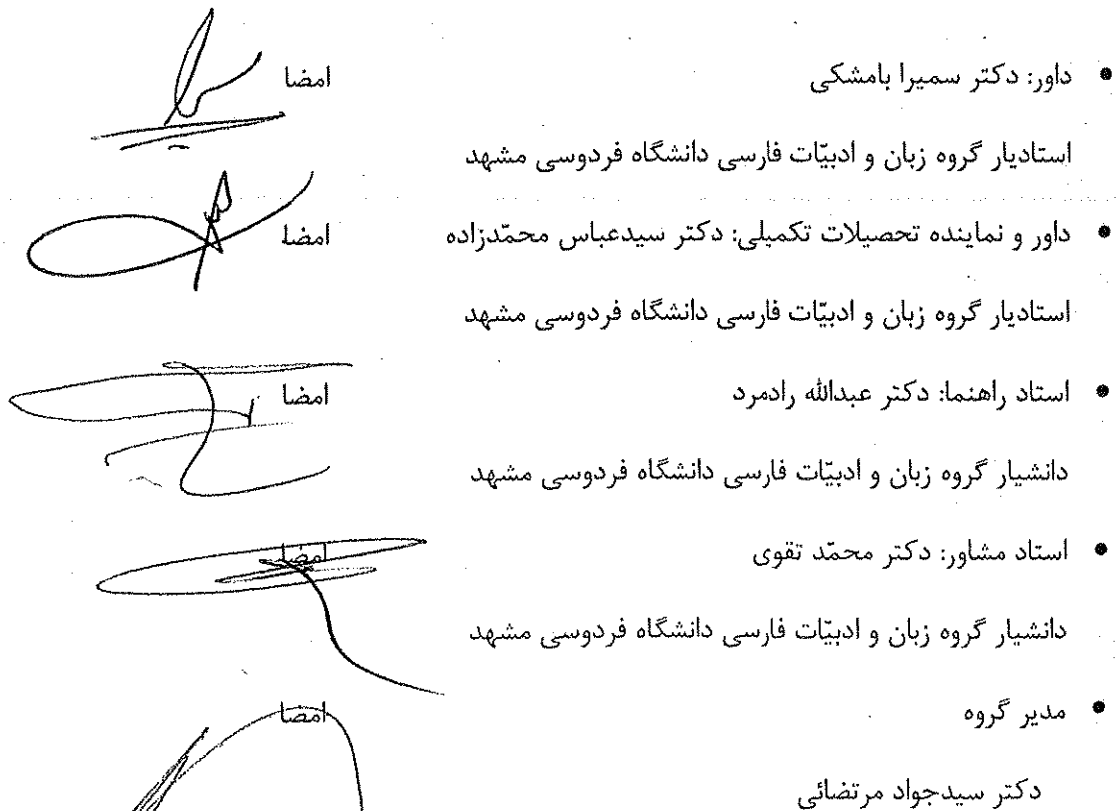 • داور: دکتر سمیرا بامشکی امضا
استادیار گروه زبان و ادبیّات فارسی دانشگاه فردوسی مشهد
• داور و نماینده تحصیلات تکمیلی: دکتر سیدعباس محمّدزاده امضا
استادیار گروه زبان و ادبیّات فارسی دانشگاه فردوسی مشهد
• استاد راهنما: دکتر عبدالله رادمرد امضا
دانشیار گروه زبان و ادبیّات فارسی دانشگاه فردوسی مشهد
• استاد مشاور: دکتر محمّد تقوی امضا
دانشیار گروه زبان و ادبیّات فارسی دانشگاه فردوسی مشهد
• مدیر گروه امضا
دکتر سیدجواد مرتضائی